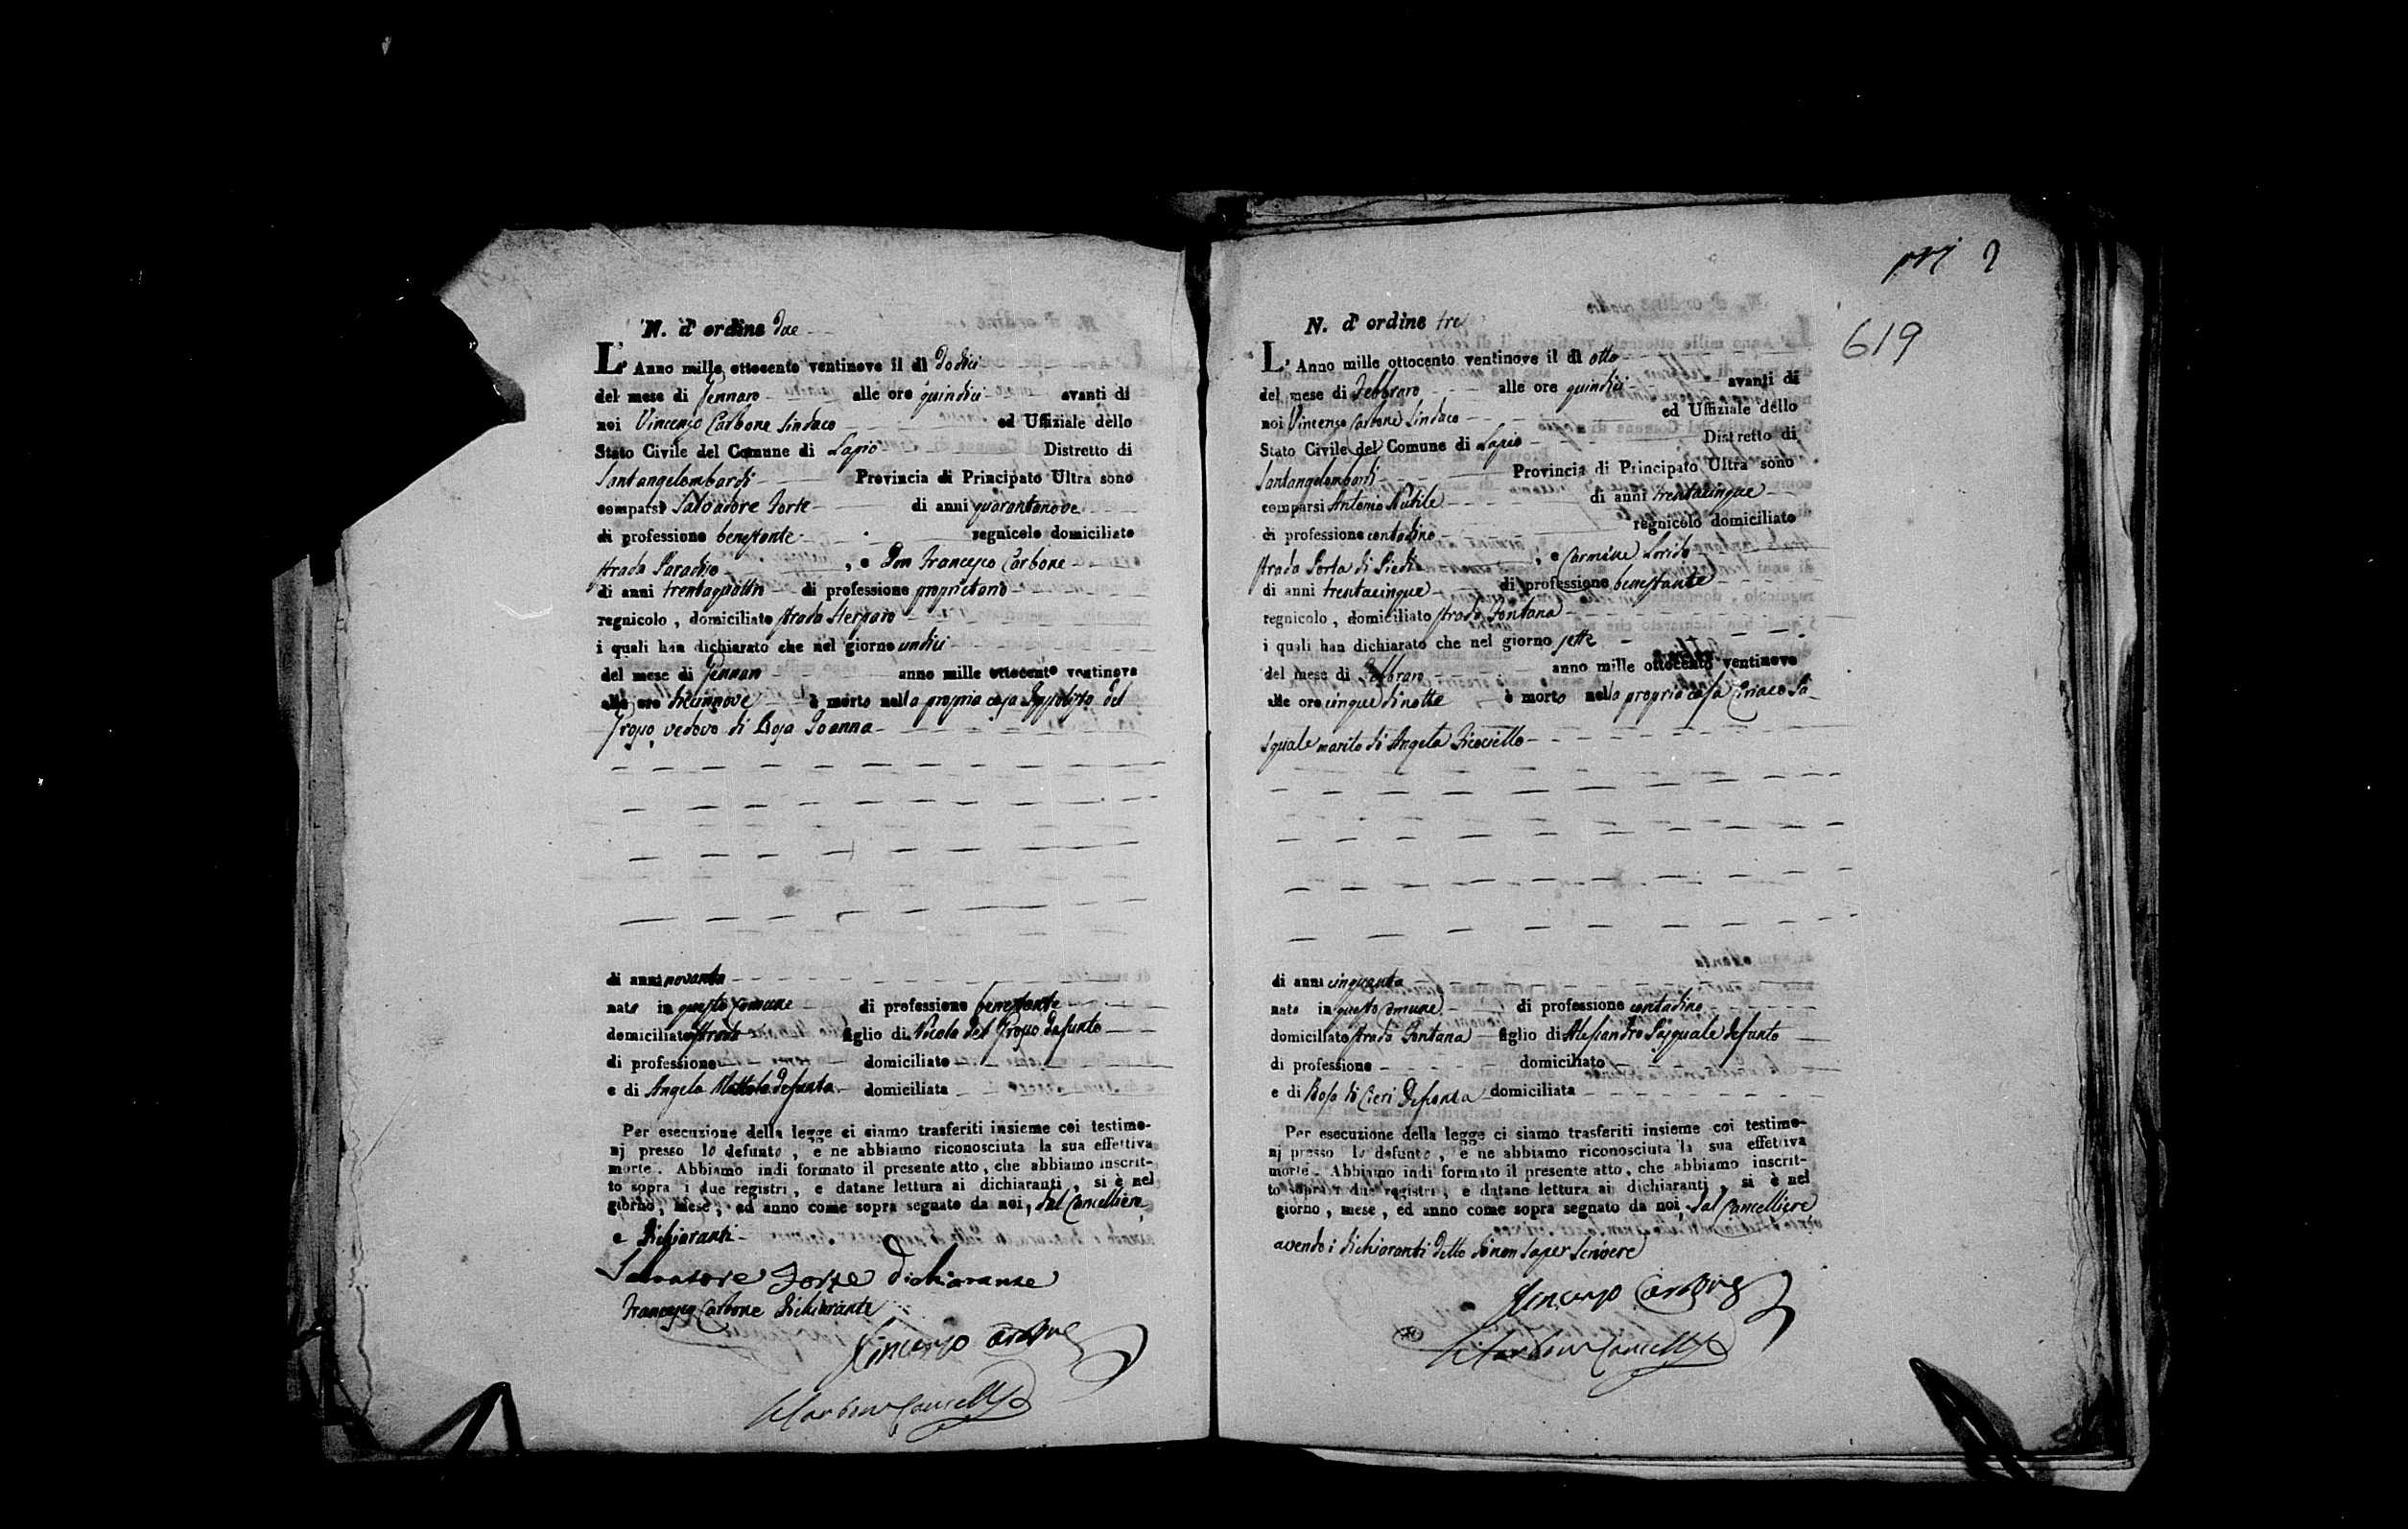 N. d'ordine due
L'Anno mille ottocento ventinove il dì dodici
del mese di Gennaro alle ore quindici avanti di
noi Vincenzo Carbone Sindaco ed Uffiziale dello
Stato Civile del Comune di Lapio Distretto di
Santangelombardi Provincia di Principato Ultra sono
comparsi Salvadore Forte di anni quarantanove
di professione benestante regnicolo domiciliato
strada Paradiso, e Don Francesco Carbone
di anni trentaquattro di professione proprietario
regnicolo, domiciliato strada
i quali han dichiarato che nel giorno undici
del mese di Gennaro anno mille ottocento ventinove
alle ore diecinnove è morto nella propria casa Ippolito del
Grosso vedovo di Rosa Ioanna
di anni novanta
nato in questo Comune di professione benestante
domiciliato strada figlio di Nicola del Grosso defunto
di professione domiciliato
e di Angela defunta domiciliata
Per esecuzione della legge ci siamo trasferiti insieme coi testimo-
nj presso lo defunto, e ne abbiamo riconosciuta la sua effettiva
morte. Abbiamo indi formato il presente atto, che abbiamo inscrit-
to sopra i due registri, e datane lettura ai dichiaranti, si è nel
giorno, mese, ed anno come sopra segnato da noi, dal Cancelliere
e Dichiaranti
Salvatore Forte Dichiarante
Francesco Carbone Dichiarante
Vincenzo Carbone
pri 2
619
N. d'ordine tre
L'Anno mille ottocento ventinove il dì otto
del mese di Febbraro alle ore quindici avanti di
noi Vincenzo Carbone Sindaco ed Uffiziale dello
Stato Civile del Comune di Lapio Distretto di
Santangelombardi Provincia di Principato Ultra sono
comparsi Antonio di anni trentacinque
di professione contadino regnicolo domiciliato
strada Porta di Piedi, e Carmine
di anni trentacinque di professione benestante
regnicolo, domiciliato strada Fontana
i quali han dichiarato che nel giorno sette
del mese di Febbraro anno mille ottocento ventinove
alle ore cinque di notte è morto nella propria casa Ciriaco Pa-
squale marito di Angela
di anni cinquanta
nato in questo Comune di professione contadino
domiciliato strada Fontana figlio di Alessandro Pasquale defunto
di professione domiciliato
e di Rosa di Cieri defunta domiciliata
Per esecuzione della legge ci siamo trasferiti insieme coi testimo-
nj presso lo defunto, e ne abbiamo riconosciuta la sua effettiva
morte. Abbiamo indi formato il presente atto, che abbiamo inscrit-
to sopra i due registri, e datane lettura ai dichiaranti, si è nel
giorno, mese, ed anno come sopra segnato da noi, dal Cancelliere
avendo i dichiaranti detto di non saper scrivere
Vincenzo Carbone